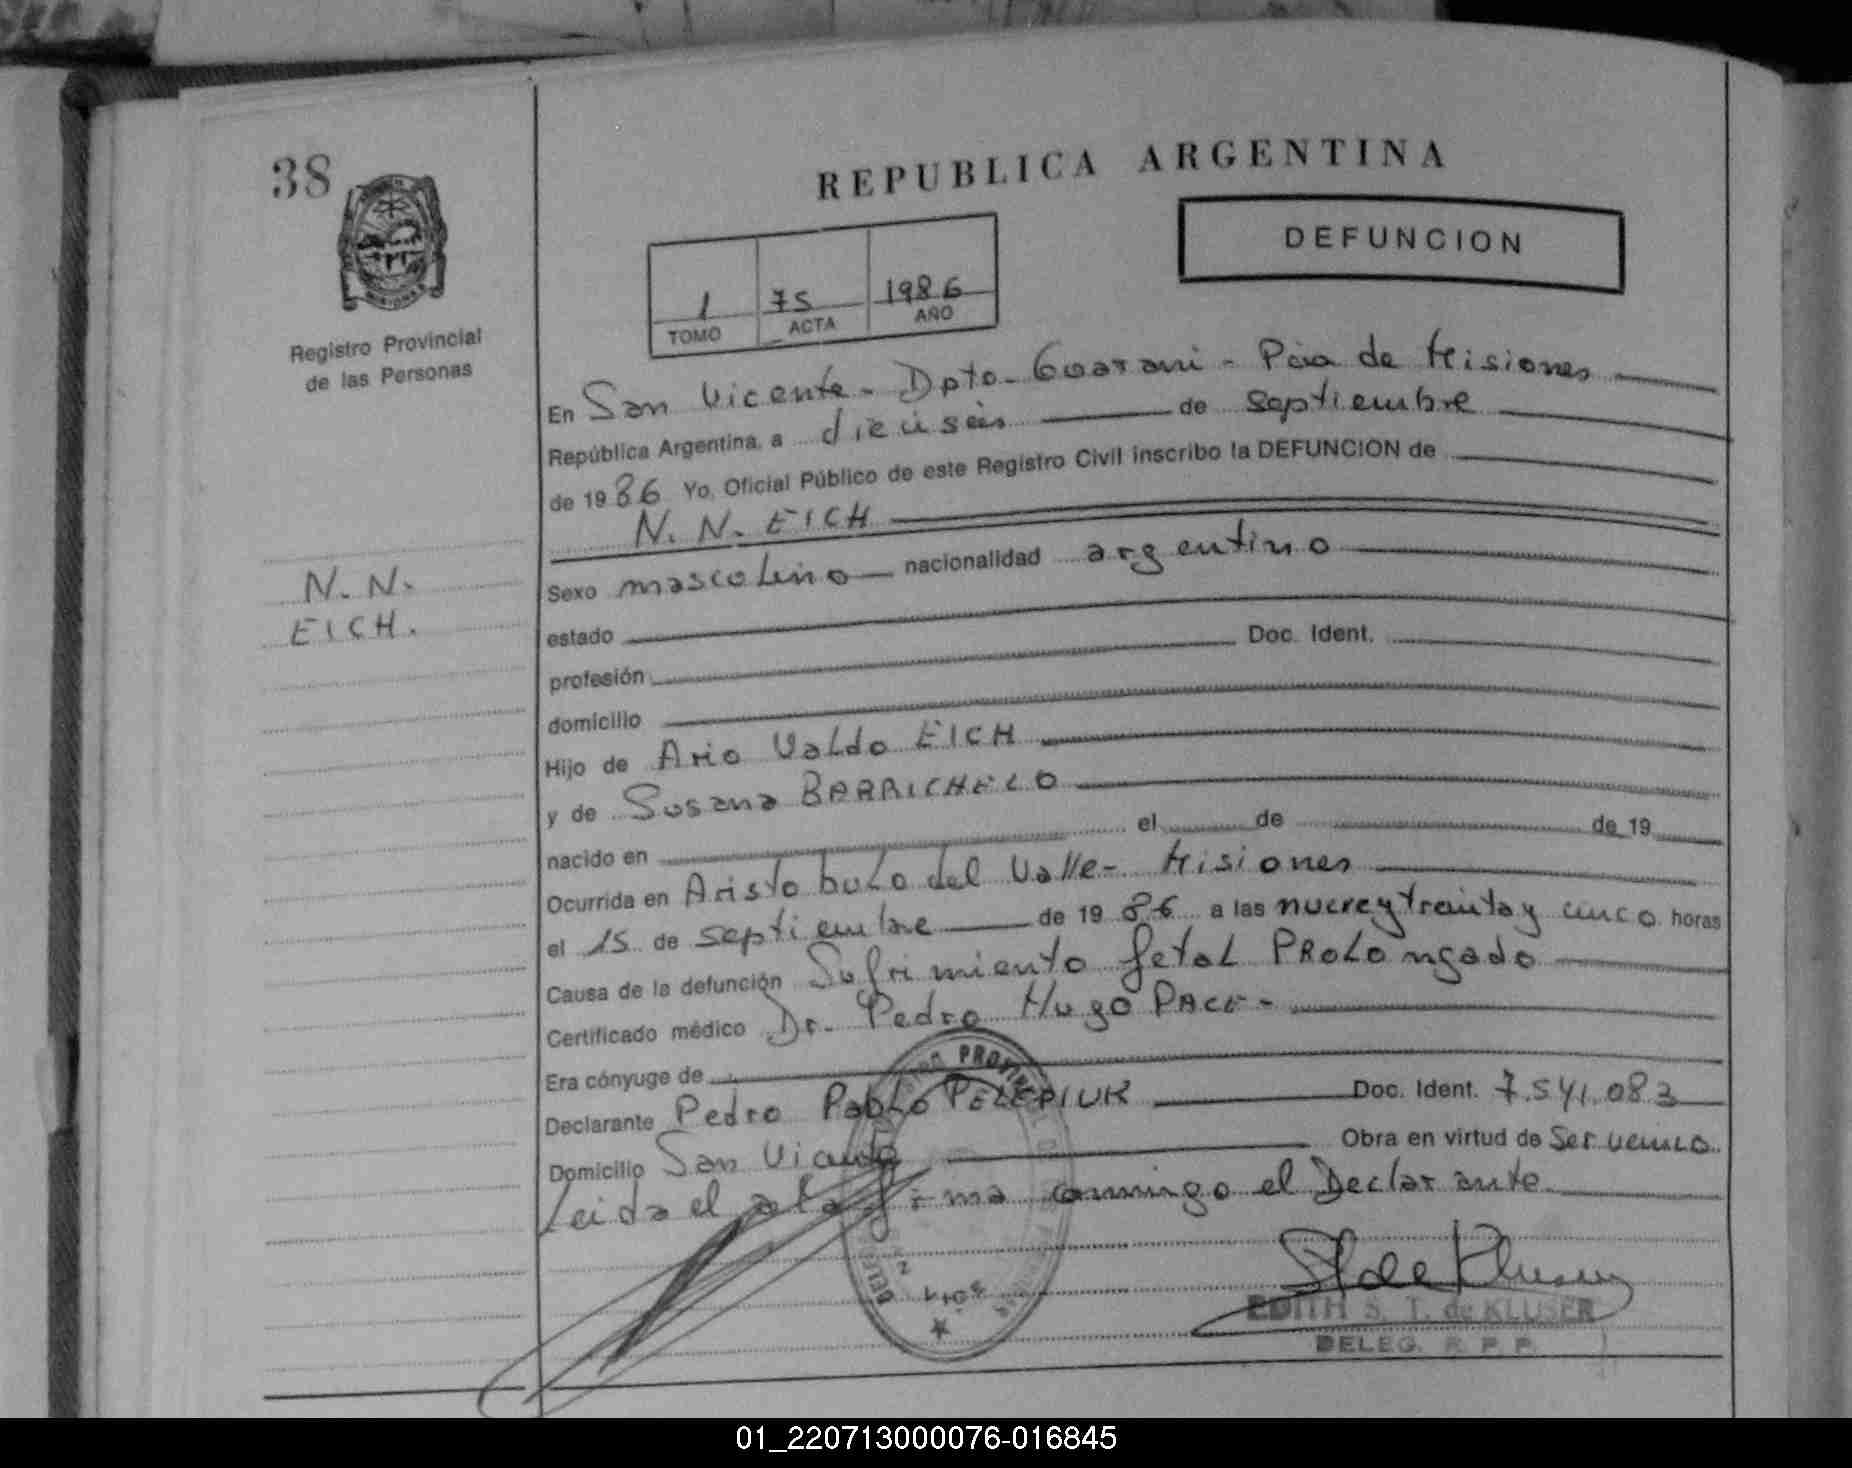 38
REPUBLICA ARGENTINA
DEFUNCION
1 75 1986
TOMO ACTA AÑO
MISIONES
Registro Provincial
de las Personas
En San Vicente - Dpto - Guarani - Pcia de Misiones
República Argentina, a dieciseis de septiembre
de 1986 Yo, Oficial Público de este Registro Civil inscribo la DEFUNCION de
N. N. EICH
N. N.
EICH.
Sexo masculino nacionalidad argentino
estado
profesión Doc. Ident.
domicilio
Hijo de Ario Valdo EICH
y de Susana BARRICHELO
nacido en el de de 19
Ocurrida en Aristobulo del Valle - Misiones
el 15 de septiembre de 1986 a las nueve y treinta y cinco horas
Causa de la defunción Sufrimiento fetal PROLongado
Certificado médico Dr. Pedro Hugo PACE -
Era cónyuge de
Declarante Pedro Pablo PELEPIUK Doc. Ident. 7.541.083
Domicilio San Vicente Obra en virtud de Ser vecino
Leida el acta firma conmigo el Declarante
EDITH S. T. de KLUSER
DELEG. R. P. P.
01_220713000076-016845